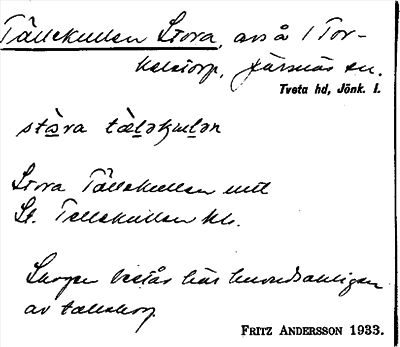 Tällekullen Stora, avs å 1 Tor-
kelstorp, Järsnäs sn.
Tveta hd, Jönk. l.
stòra tæ̀ləkụlən
Stora Tällekullen intill
St. Tällekullen kk.
Skogen består här huvudsakligen
av tallskog
FRITZ ANDERSSON 1933.